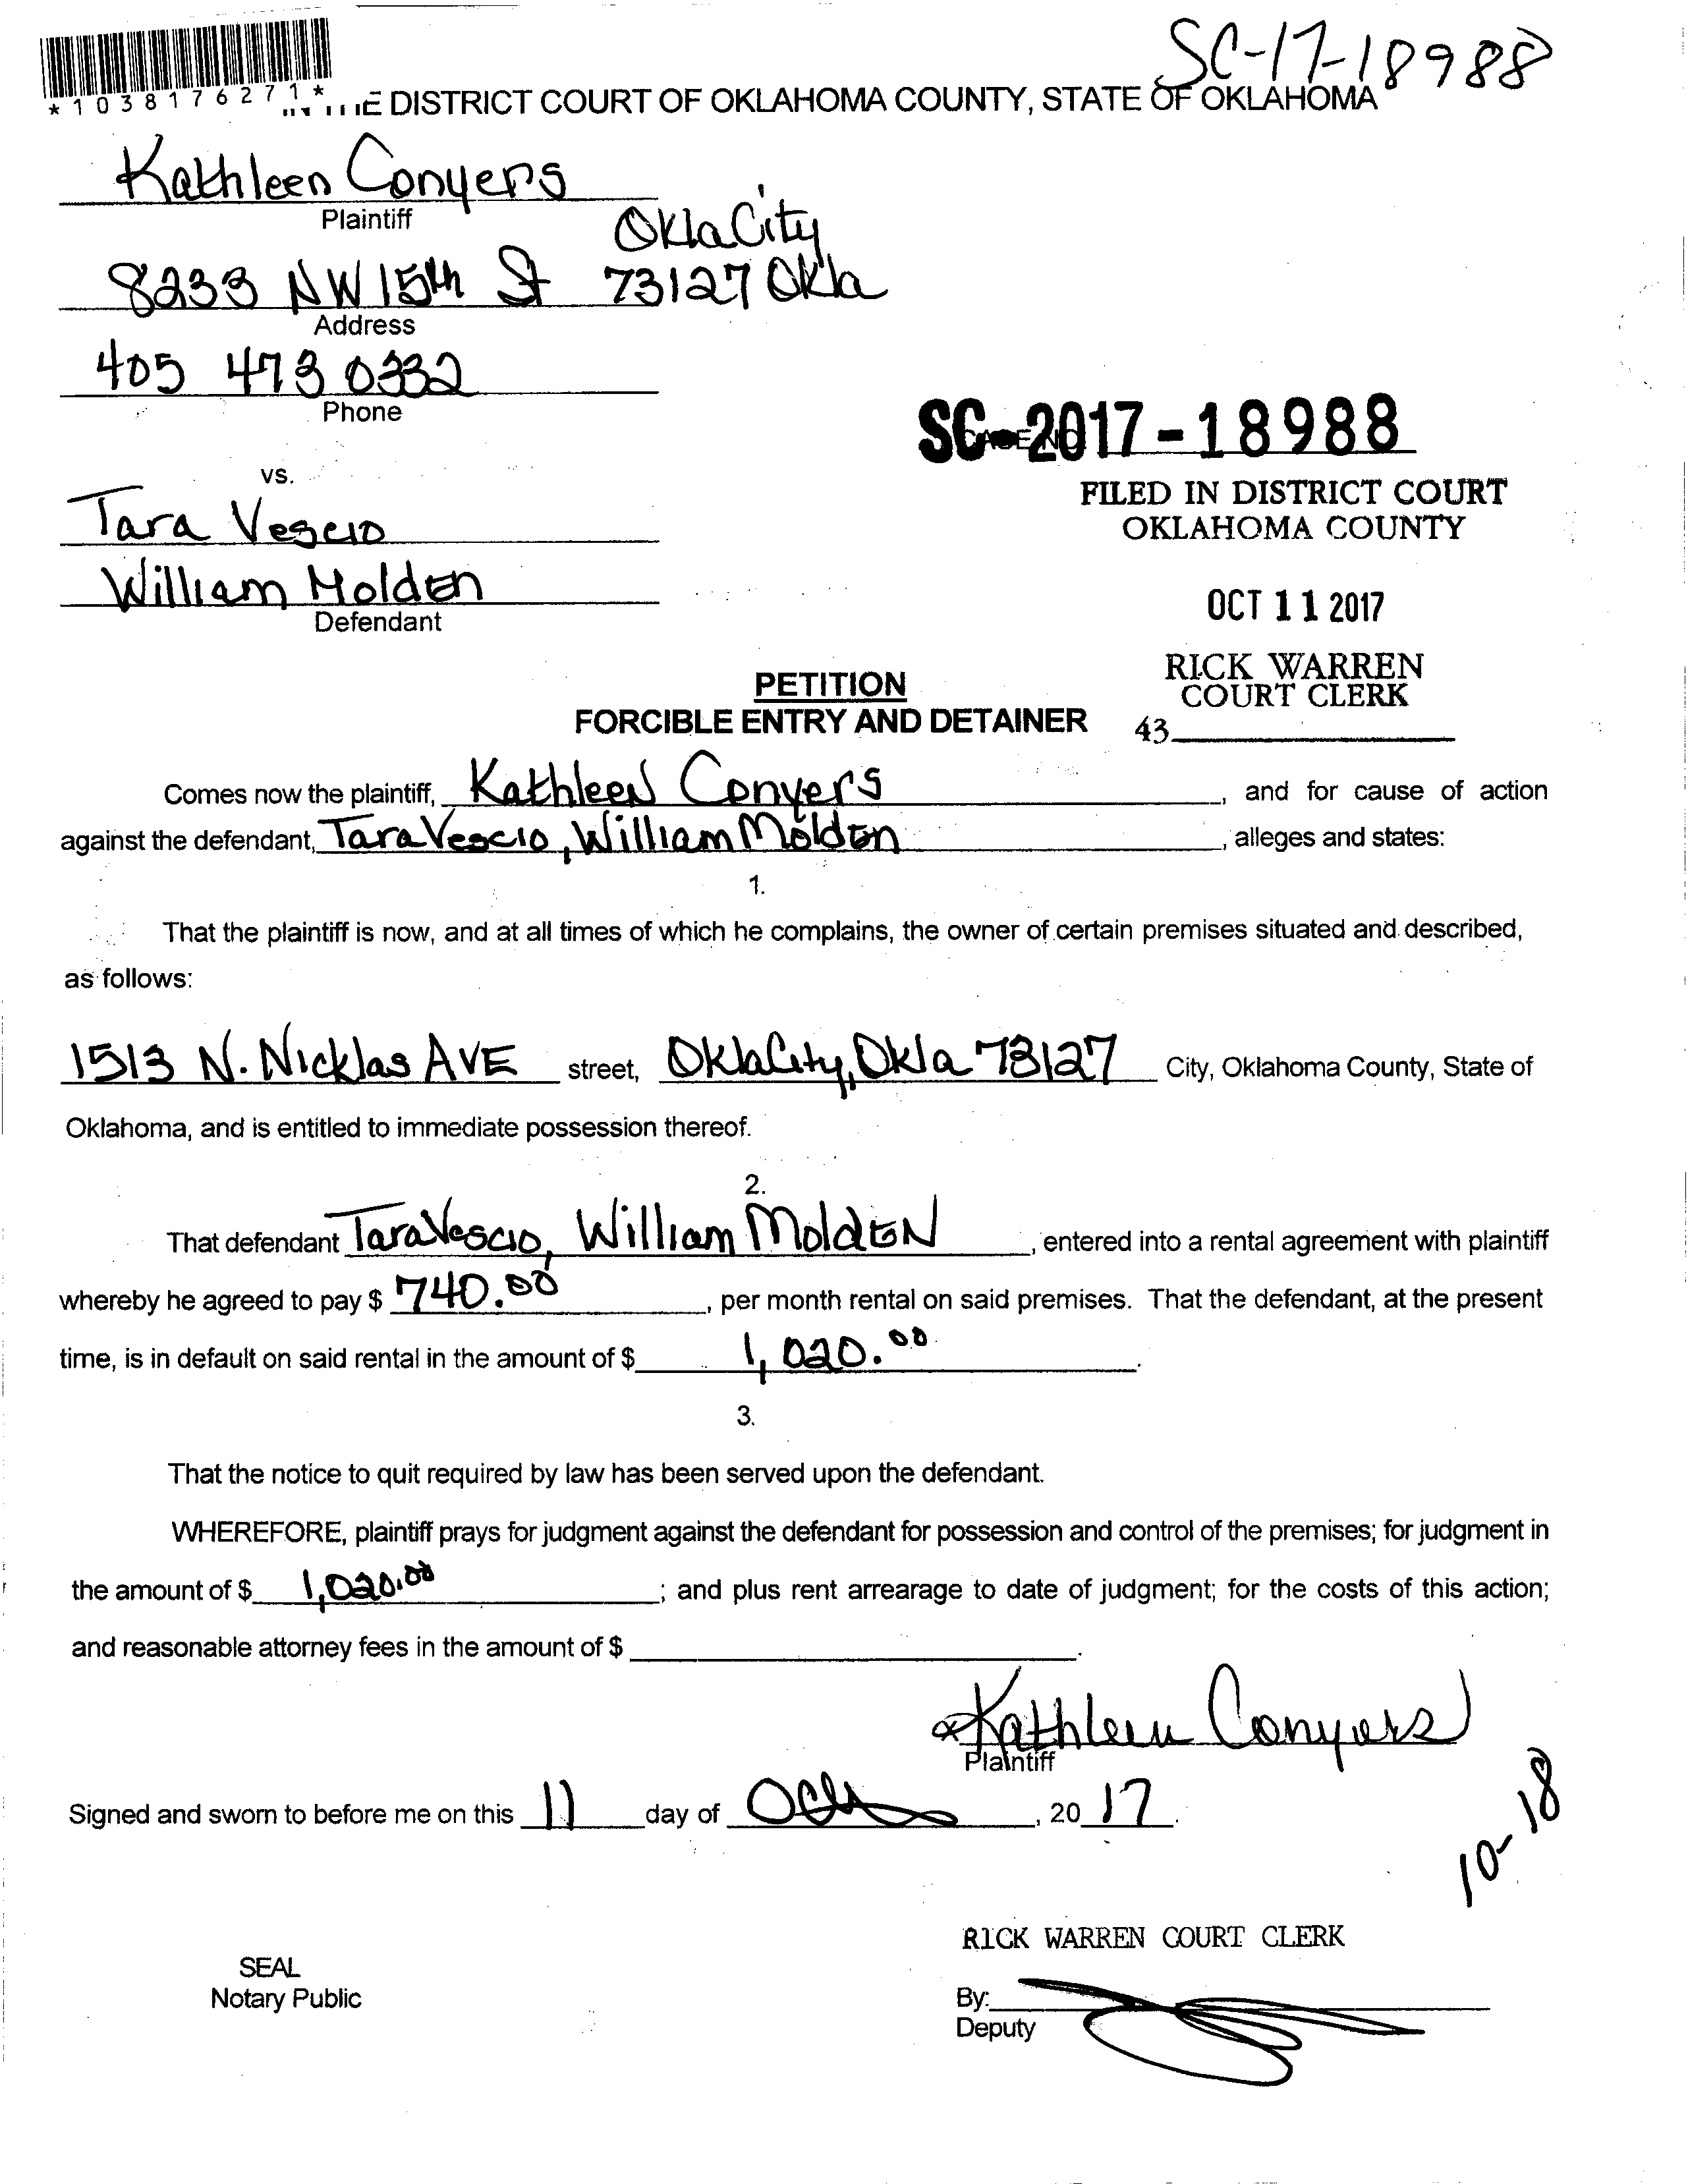 SC-17-18988
*1038176271*
IN THE DISTRICT COURT OF OKLAHOMA COUNTY, STATE OF OKLAHOMA
Kathleen Conyers
Plaintiff
Okla City
8233 NW 15th St 73127 Okla
Address
405 473 0332
Phone
SC-2017-18988
CASE NO
vs.
FILED IN DISTRICT COURT
OKLAHOMA COUNTY
Tara Vescio
William Molden
Defendant
OCT 11 2017
RICK WARREN
COURT CLERK
43
PETITION
FORCIBLE ENTRY AND DETAINER
Comes now the plaintiff, Kathleen Conyers, and for cause of action
against the defendant, Tara Vescio, William Molden, alleges and states:
1.
That the plaintiff is now, and at all times of which he complains, the owner of certain premises situated and described,
as follows:
1513 N. Nicklas AVE street, Okla City, Okla 73127 City, Oklahoma County, State of
Oklahoma, and is entitled to immediate possession thereof.
2.
That defendant Tara Vescio, William Molden, entered into a rental agreement with plaintiff
whereby he agreed to pay $ 740.00, per month rental on said premises. That the defendant, at the present
time, is in default on said rental in the amount of $ 1,020.00.
3.
That the notice to quit required by law has been served upon the defendant.
WHEREFORE, plaintiff prays for judgment against the defendant for possession and control of the premises; for judgment in
the amount of $ 1,020.00; and plus rent arrearage to date of judgment; for the costs of this action;
and reasonable attorney fees in the amount of $ .
x Kathleen Conyers
Plaintiff
Signed and sworn to before me on this 11 day of Oct, 2017.
10-18
RICK WARREN COURT CLERK
SEAL
Notary Public
By:
Deputy